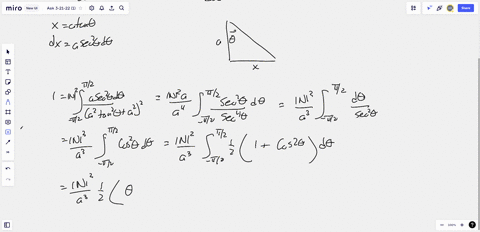 miro
Asin 3-21-22 (1)
Share
x = a tanθ
dx = a sec²θ dθ
a
θ
x
1 = |N|² ∫_{-π/2}^{π/2} a sec²θ dθ / (a² tan²θ + a²)² = |N|² a / a⁴ ∫_{-π/2}^{π/2} sec²θ / sec⁴θ dθ = |N|² / a³ ∫_{-π/2}^{π/2} dθ / sec²θ
= |N|² / a³ ∫_{-π/2}^{π/2} cos²θ dθ = |N|² / a³ ∫_{-π/2}^{π/2} 1/2 (1 + cos2θ) dθ
= |N|² / a³ 1/2 ( θ